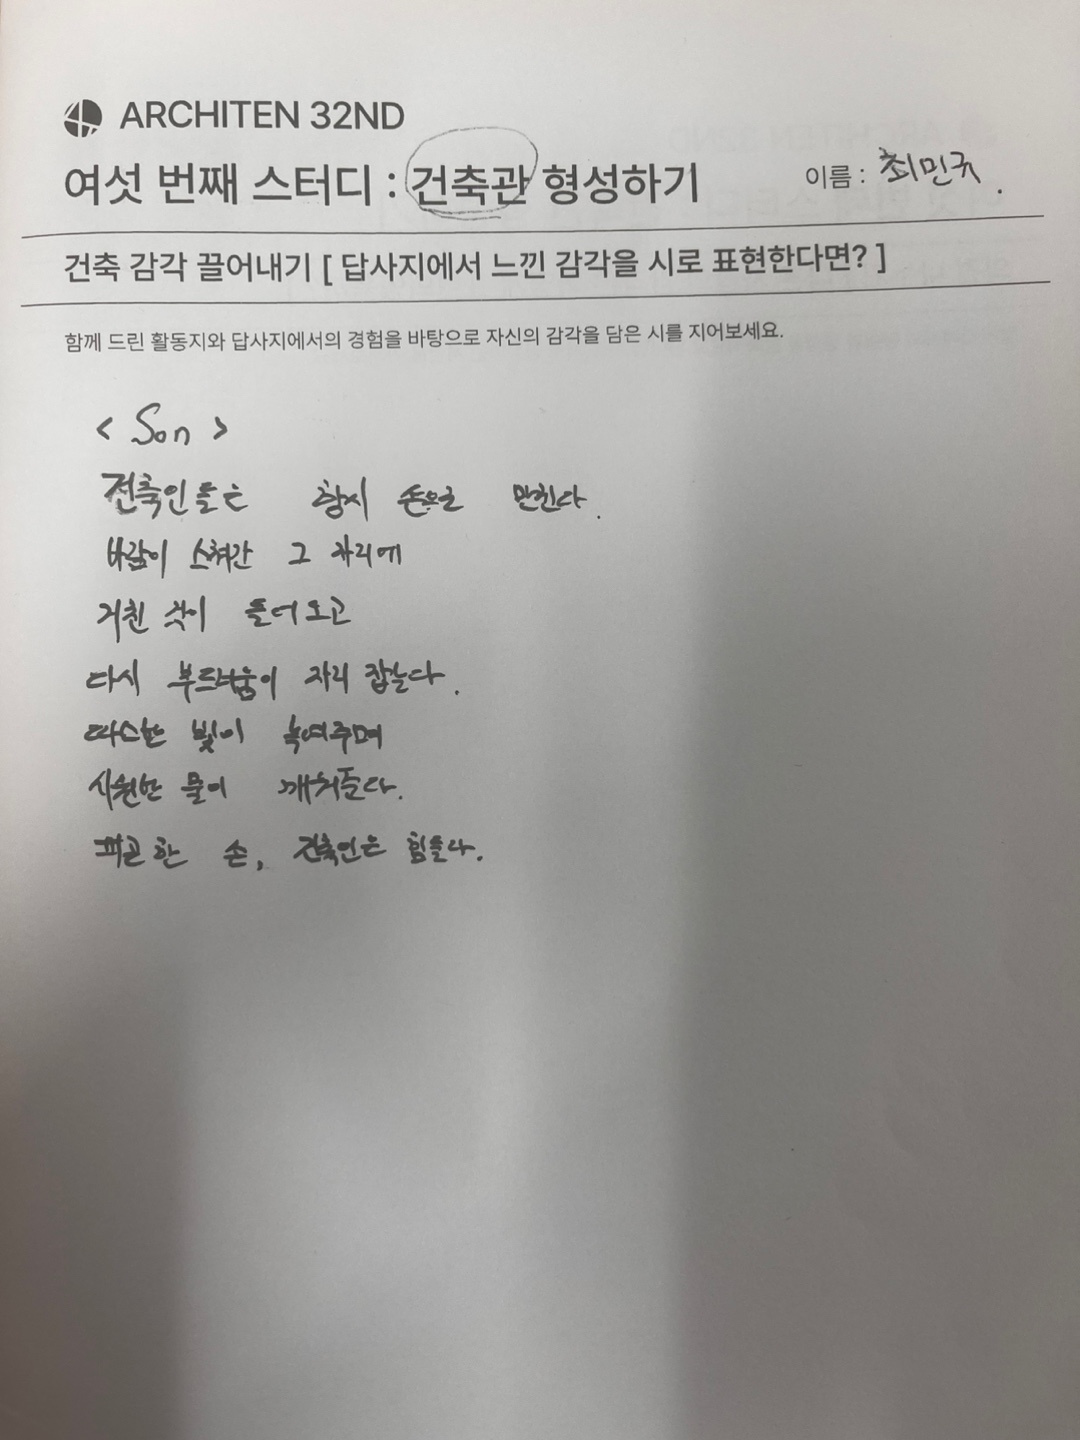 ARCHITEN 32ND
여섯 번째 스터디 : 건축관 형성하기
이름 : 최민규.
건축 감각 끌어내기 [ 답사지에서 느낀 감각을 시로 표현한다면? ]
함께 드린 활동지와 답사지에서의 경험을 바탕으로 자신의 감각을 담은 시를 지어보세요.
< Son >
건축인들은 항시 손으로 만진다.
바람이 스쳐간 그 자리에
거친 석이 들어오고
다시 부드러움이 자리 잡는다.
따스한 빛이 녹여주며
시원한 물이 깨워준다.
피곤한 손, 건축인은 힘들다.